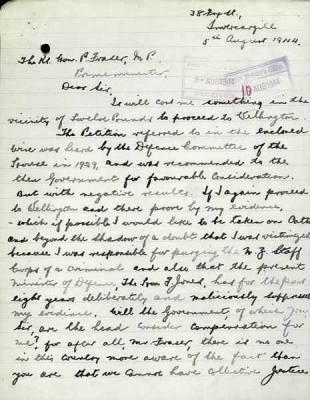 38 Gup St.,
Invercargill
5th August 1944.
The Rt. Hon. P. Fraser, M.P.
Prime minister,
AUG 1944
10 AUG 1944
Dear Sir,
It will cost me something in the
vicinity of Twelve Pounds to proceed to Wellington.
The Petition referred to in the enclosed
wire was heard by the Defence Committee of the
House in 1929, and was recommended to the
then Government for favourable consideration.
But with negative results. If I again proceed
to Wellington and there prove by my evidence,
- which if possible I would like to be taken on Oath
and beyond the shadow of a doubt that I was victimized
because I was responsible for purging the N.Z. Staff
Corps of a criminal and also that the present
Minister of Defence, The Hon F. Jones, has for the past
eight years deliberately and maliciously suppressed
my evidence. Will the Government, of which you
Sir, are the head consider compensation for
me? for after all, Mr. Fraser, there is no one
in this country more aware of the fact than
you are that we cannot have collective justice